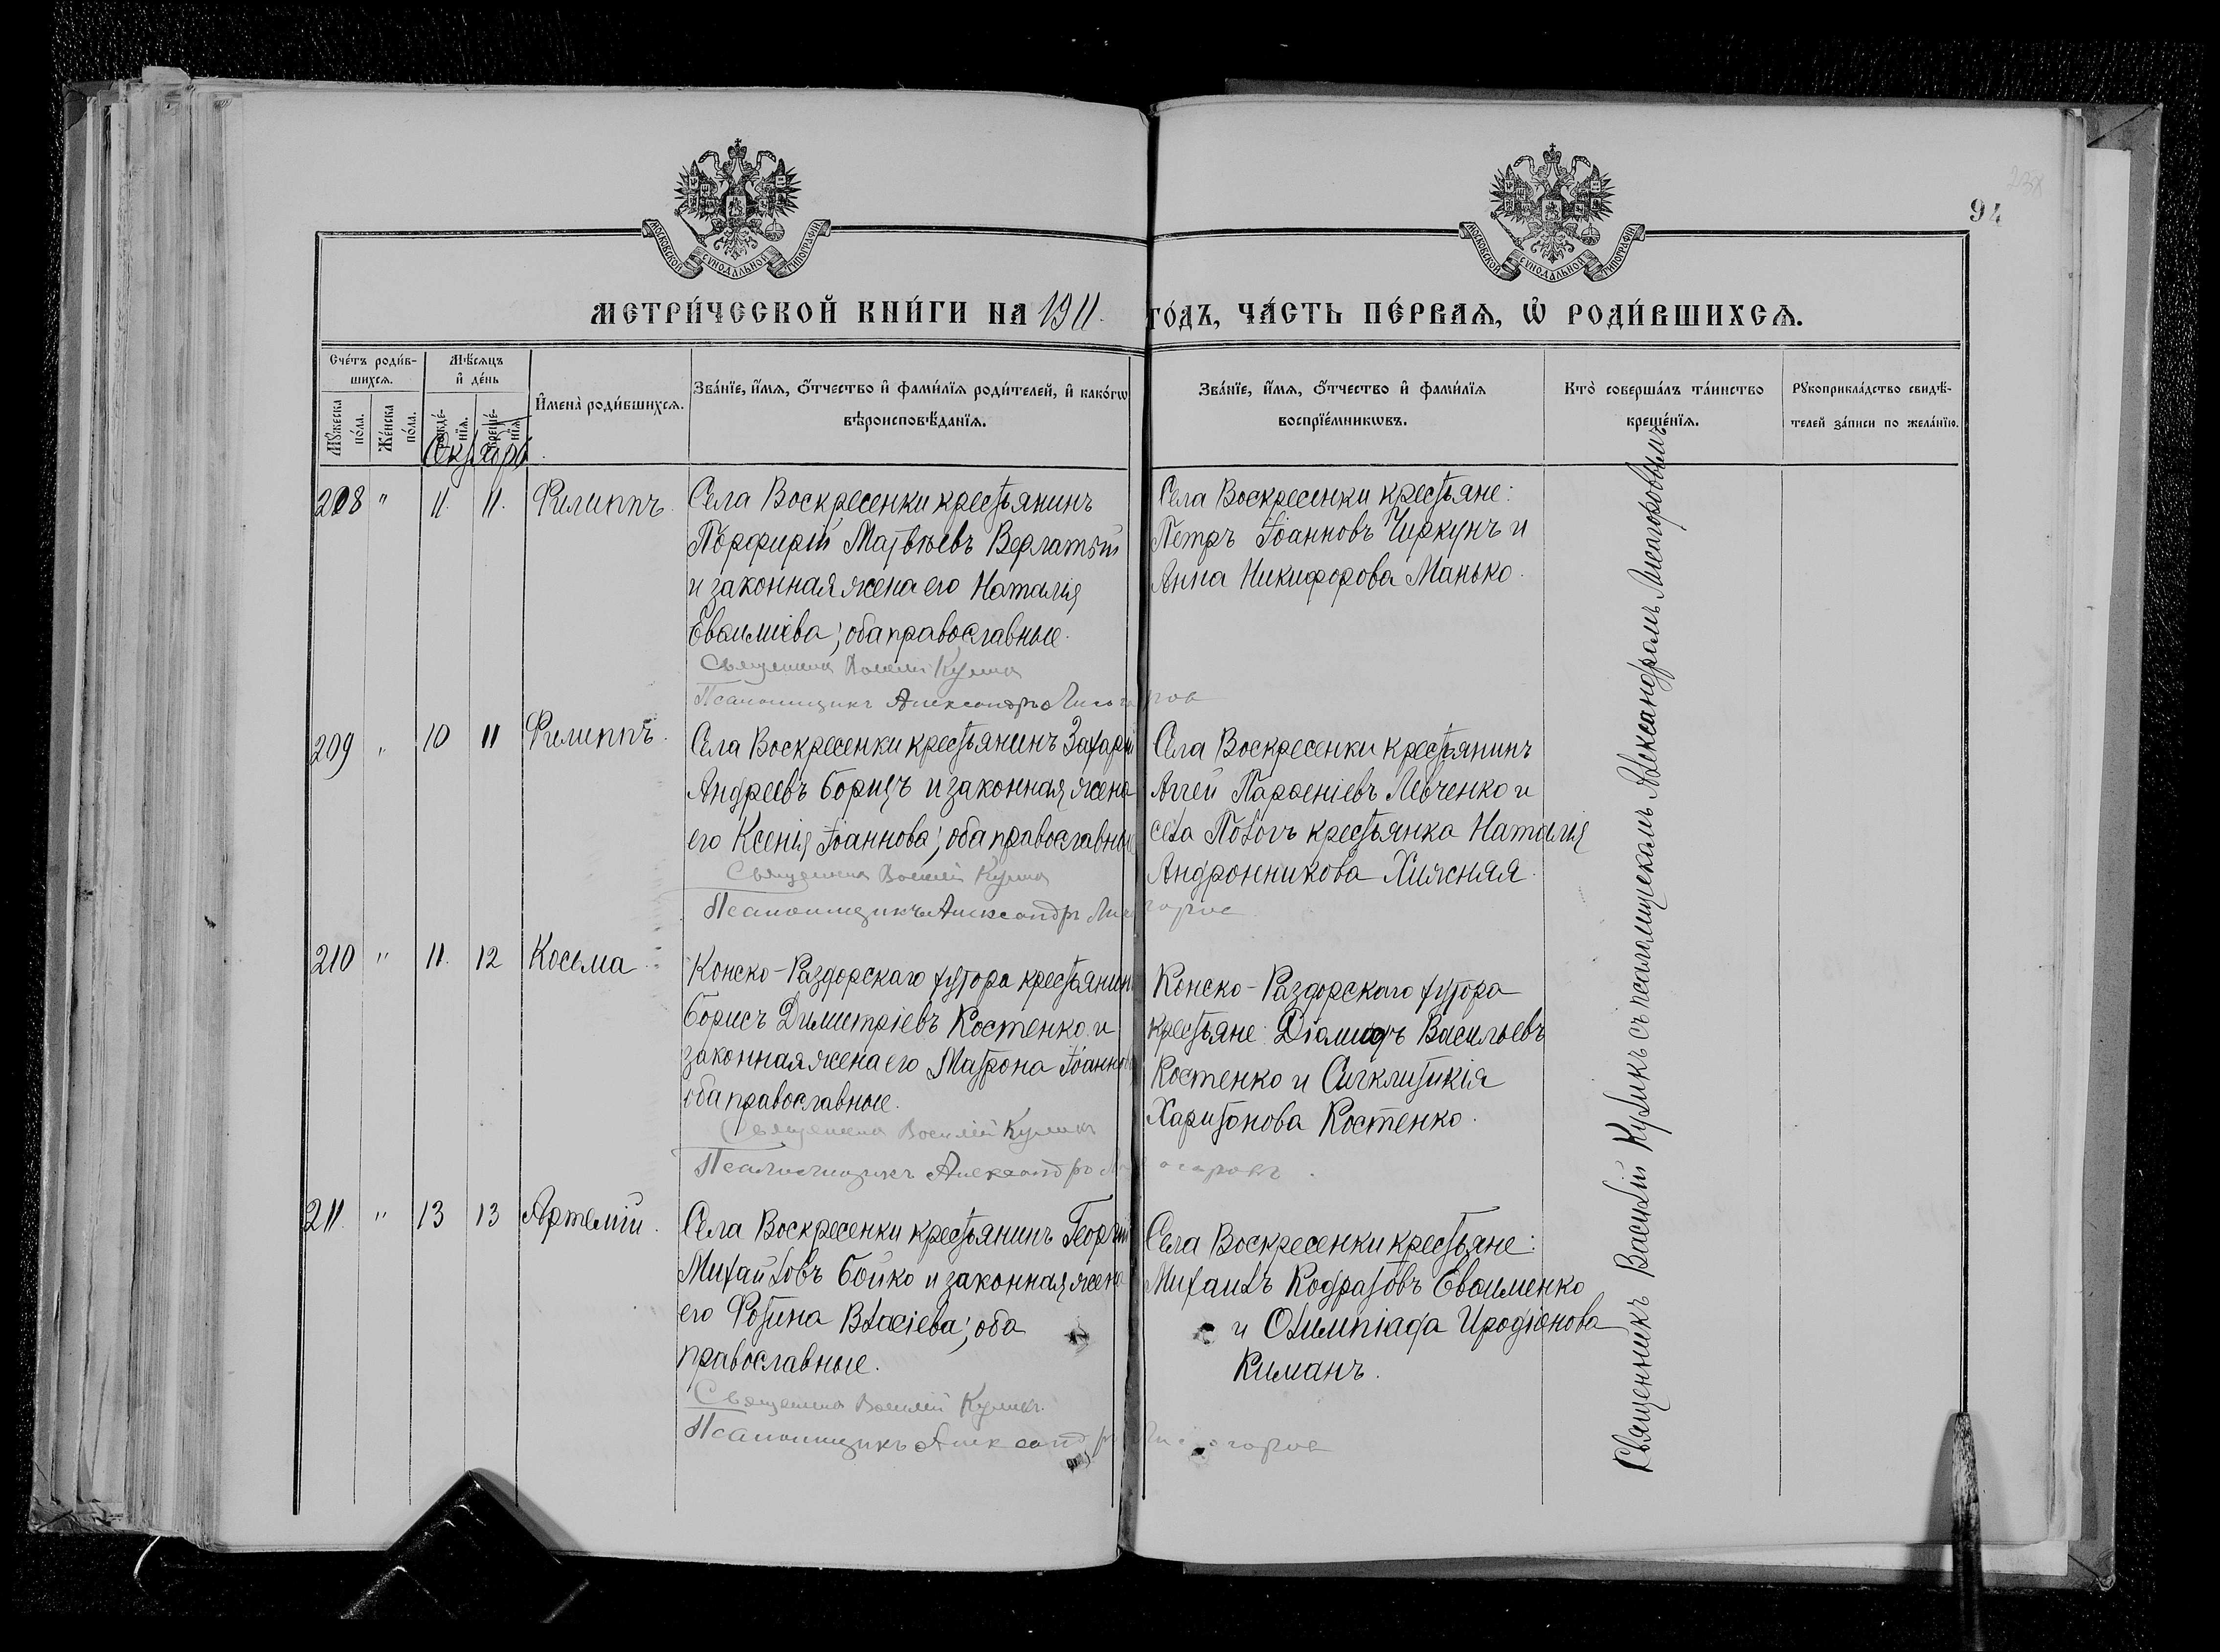 238
94
МОСКОВСКОЙ СѴНОДАЛЬНОЙ ТИПОГРАФІИ
МОСКОВСКОЙ СѴНОДАЛЬНОЙ ТИПОГРАФІИ
МЕТРИ́ЧЕСКОЙ КНИ́ГИ НА 1911. ГО́ДЪ, ЧА́СТЬ ПЕ́РВАѦ, Ѡ҆ РОДИ́ВШИХСѦ.
Сче́тъ роди́в-
шихсѧ.
Мꙋ́жеска по́ла.
Же́нска по́ла.
Мѣ́сѧцъ
и҆ де́нь
рожде́-нїѧ.
креще́-нїѧ.
И҆мена̀ роди́вшихсѧ.
Зва́нїе, и҆́мѧ, ѻ҆́тчество и҆ фами́лїѧ роди́телей, и҆ како́гѡ
вѣроисповѣ́данїѧ.
Зва́нїе, и҆́мѧ, ѻ҆́тчество и҆ фами́лїѧ
воспрїе́мникѡвъ.
Кто̀ соверша́лъ та́инство
креще́нїѧ.
Рꙋкоприкла́дство свидѣ́-
телей за́писи по жела́нїю.
Октябрь
208 " 11. 11. Филиппъ.
Села Воскресенки крестьянинъ
Порфирій Матвѣевъ Верлатый
и законная жена его Наталія
Евѳиміева; оба православные.
Священникъ Василій Куликъ
Псаломщикъ Александръ Лисогоровъ
Села Воскресенки крестьяне:
Петръ Іоанновъ Чиркунъ и
Анна Никифорова Манько.
209 " 10 11 Филиппъ.
Села Воскресенки крестьянинъ Захарій
Андреевъ Борицъ и законная жена
его Ксенія Іоаннова; оба православные
Священникъ Василій Куликъ
Псаломщикъ Александръ Лисогоровъ
Села Воскресенки крестьянинъ
Аггей Парѳеніевъ Левченко и
села Пологъ крестьянка Наталія
Андронникова Хижняя.
210 " 11. 12 Косьма
Конско-Раздорскаго хутора крестьянинъ
Борисъ Димитріевъ Костенко и
законная жена его Матрона Іоаннова
оба православные.
Священникъ Василій Куликъ
Псаломщикъ Александръ Лисогоровъ.
Конско-Раздорскаго хутора
крестьяне: Діомидъ Васильевъ
Костенко и Сигклитикія
Харитонова Костенко.
211. " 13 13 Артемій.
Села Воскресенки крестьянинъ Георгій
Михайловъ Бойко и законная жена
его Фотина Власіева; оба
православные.
Священникъ Василій Куликъ.
Псаломщикъ Александръ Лисогоровъ
Села Воскресенки крестьяне:
Михаилъ Кодратовъ Евѳименко
и Олимпіада Иродіонова
Киманъ.
Священникъ Василій Куликъ съ псаломщикомъ Александромъ Лисогоровымъ